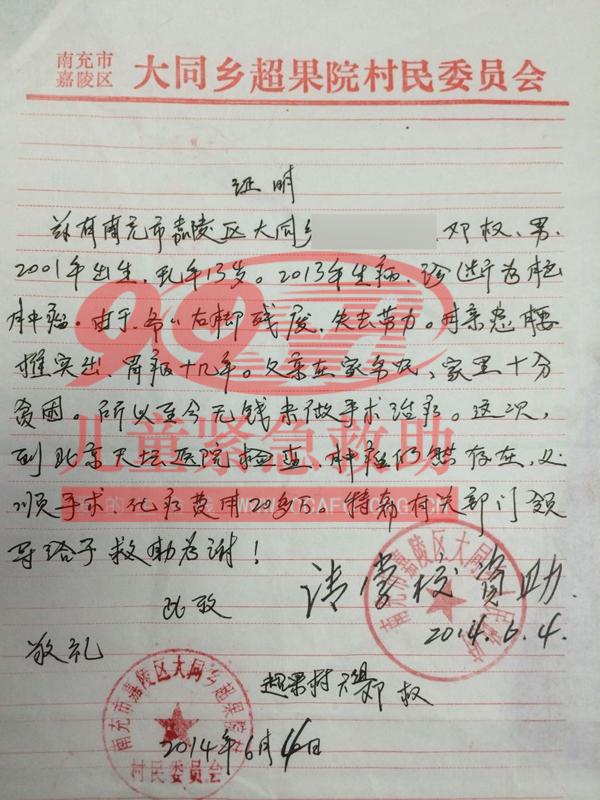 南充市
嘉陵区
大同乡超果院村民委员会
证明
兹有南充市嘉陵区大同乡 邓权、男、
2001年出生,现年13岁。2013年生病,诊断为脑
肿瘤。由于 右脚残废,失去劳力。母亲患腰
椎突出、胃病十几年。父亲在家务农,家里十分
贫困。所以至今无钱来做手术治疗。这次,
到北京天坛医院检查,肿瘤仍然存在,必
须手术 化疗费用20多万。特希有关部门领
导给予救助为谢!
此致
敬礼
请 资助.
2014.6.4.
超果村 邓权
2014年6月4日
998
儿童紧急救助
南充市嘉陵区大同乡超果院村
村民委员会
南充市嘉陵区大同乡人民政府